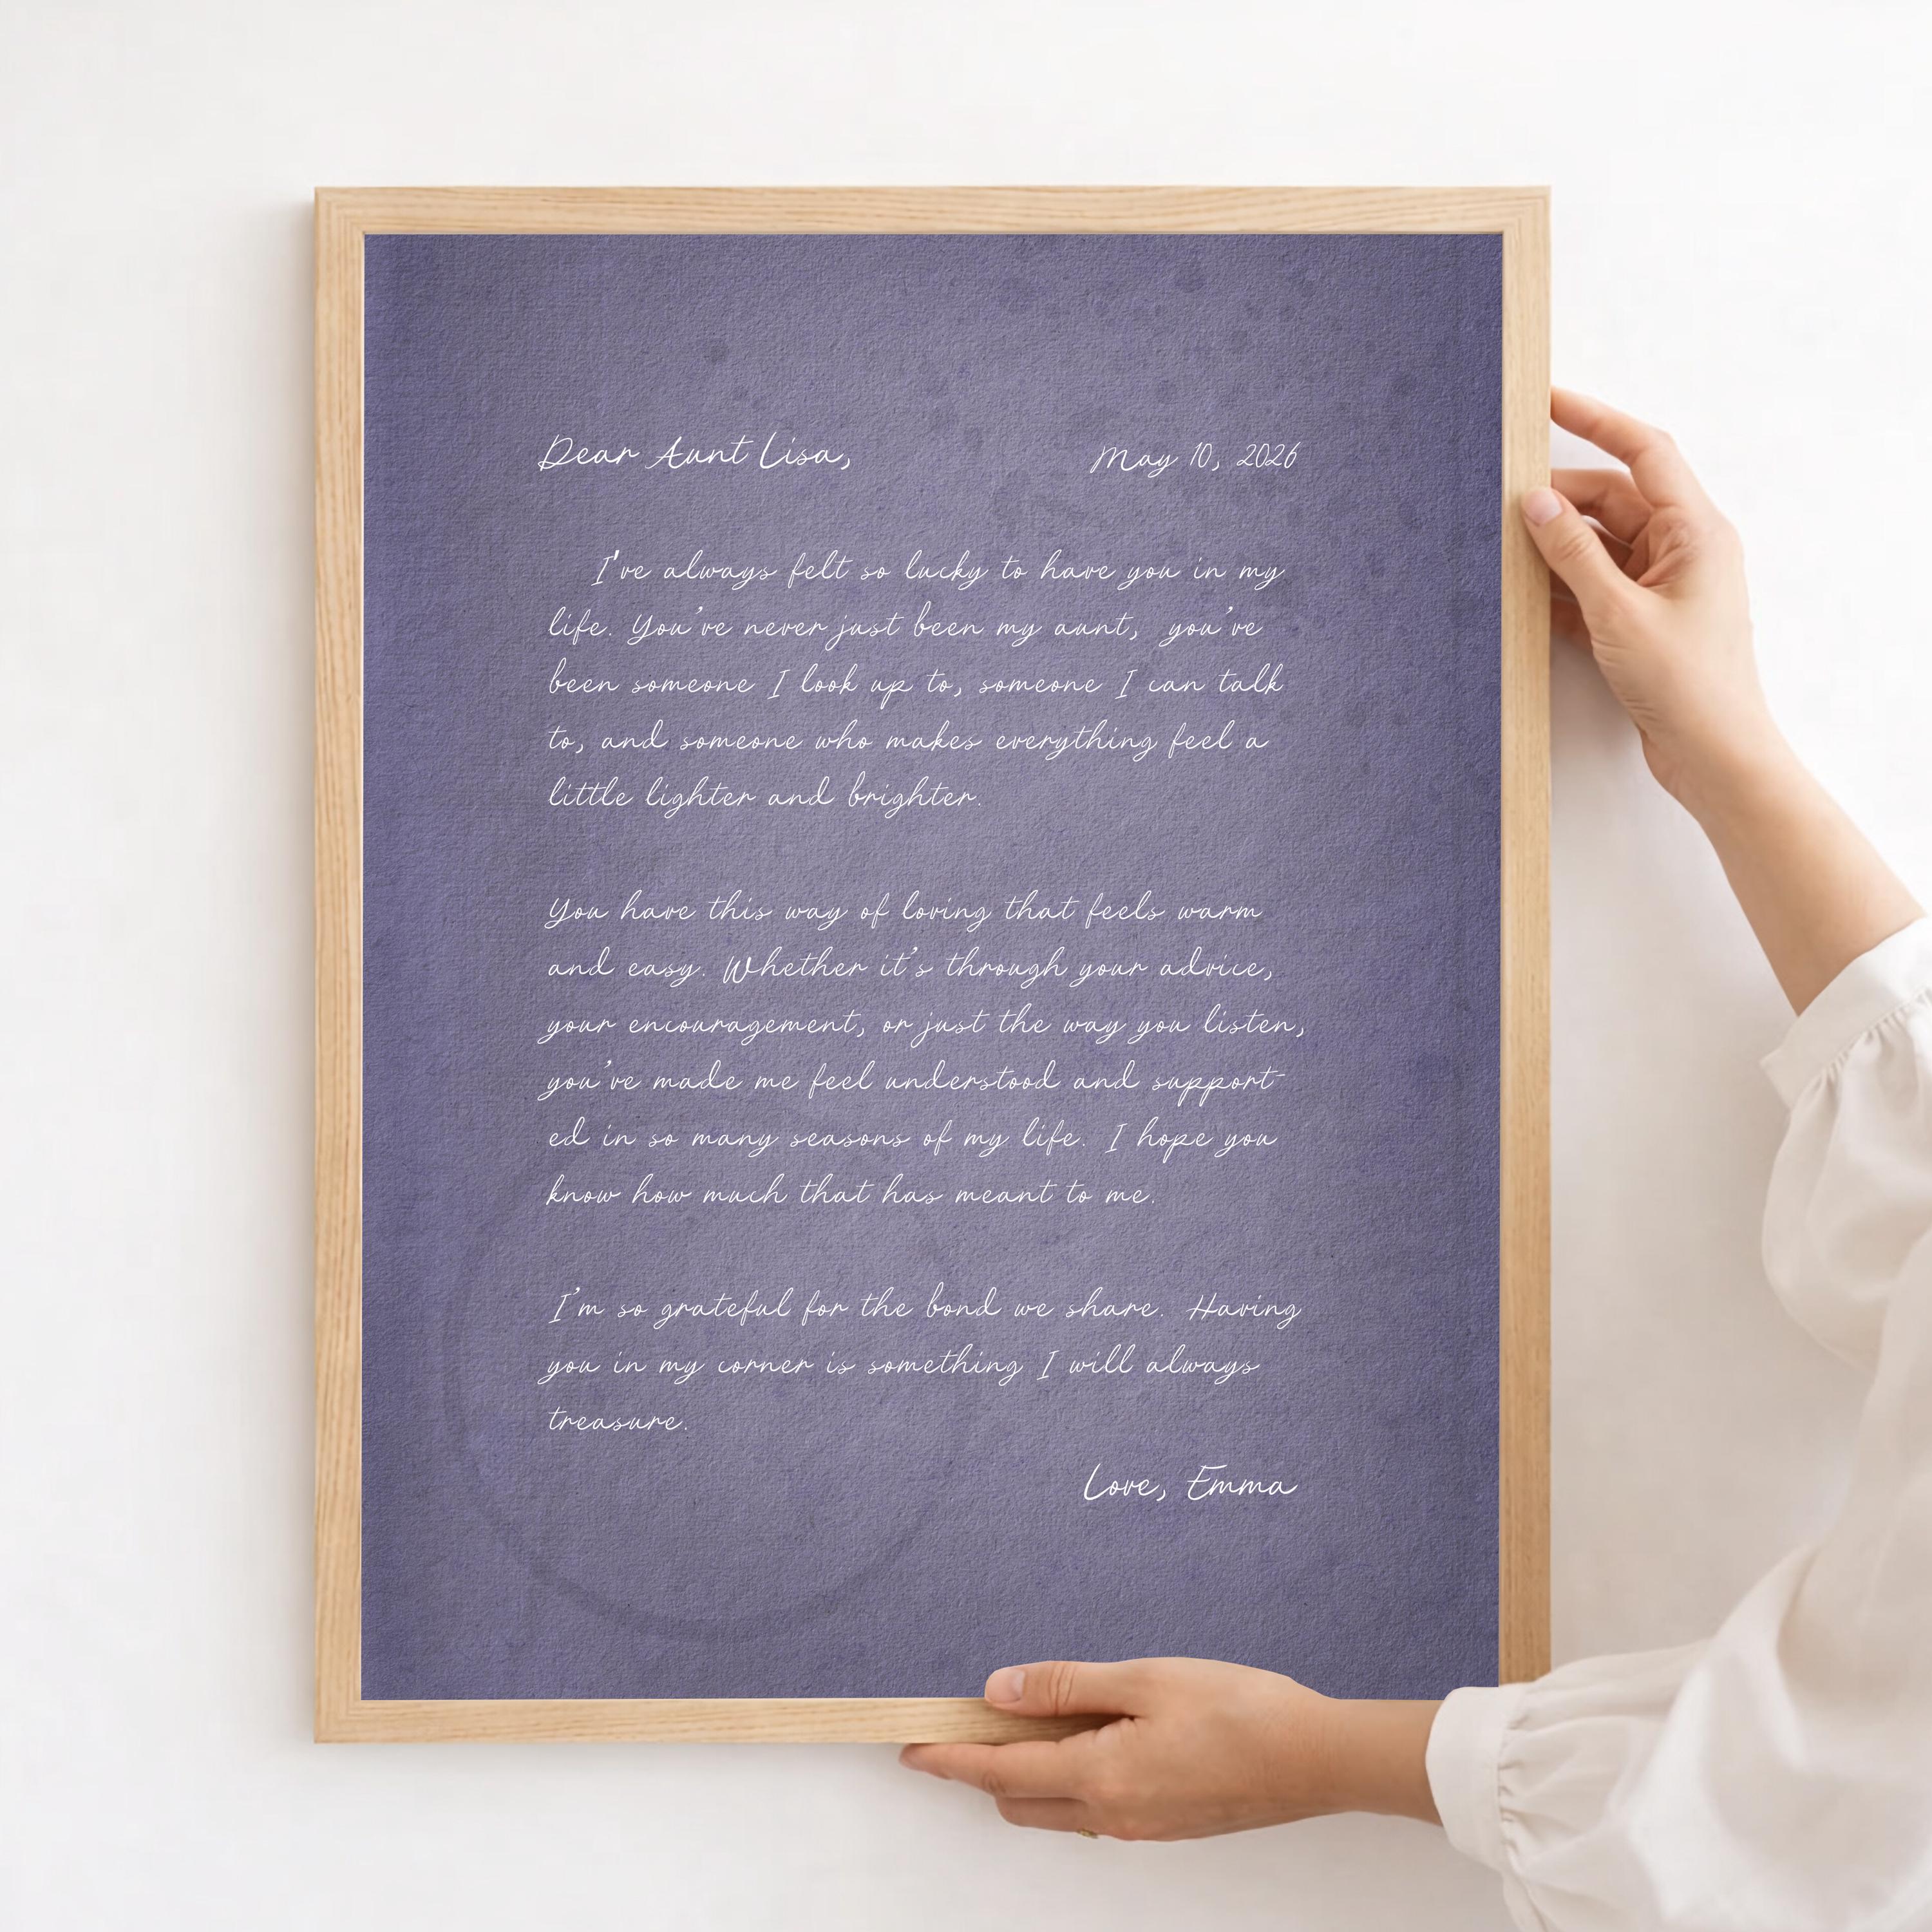 Dear Aunt Lisa, May 10, 2026
I've always felt so lucky to have you in my
life. You've never just been my aunt, you've
been someone I look up to, someone I can talk
to, and someone who makes everything feel a
little lighter and brighter.
You have this way of loving that feels warm
and easy. Whether it's through your advice,
your encouragement, or just the way you listen,
you've made me feel understood and support-
ed in so many seasons of my life. I hope you
know how much that has meant to me.
I'm so grateful for the bond we share. Having
you in my corner is something I will always
treasure.
Love, Emma